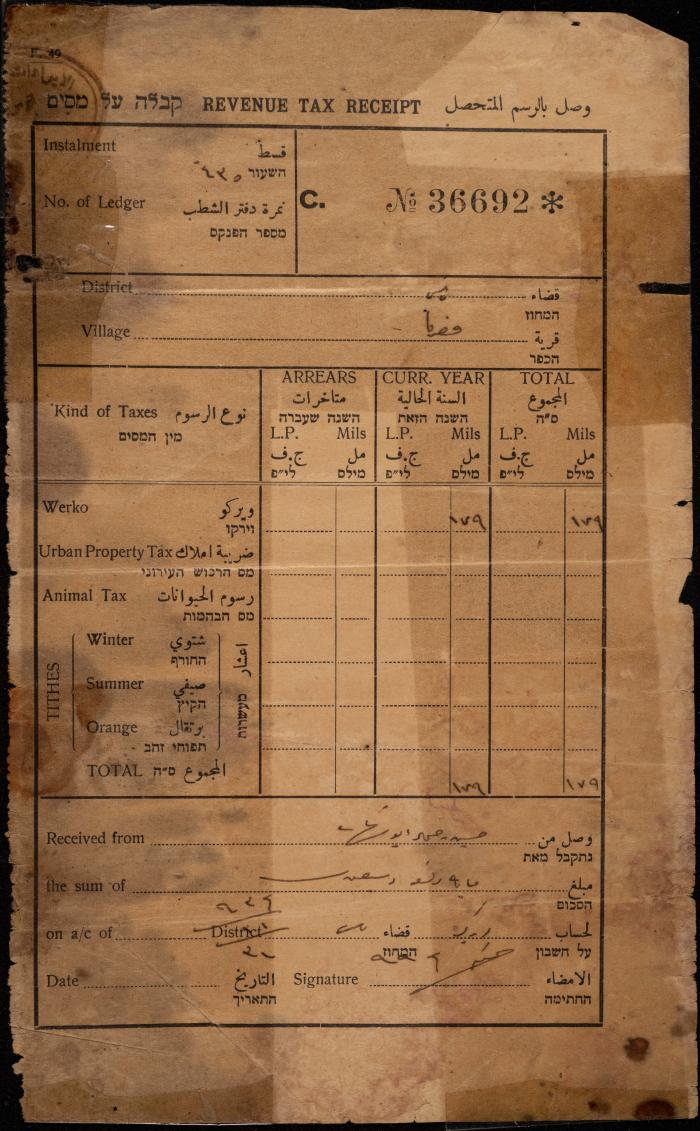 F. 49
קבלה על מסים REVENUE TAX RECEIPT وصل بالرسم المتحصل
Instalment قسط
השעור
No. of Ledger نمرة دفتر الشطب
מספר הפנקס
C. № 36692 *
District قضاء
המחוז
Village قرية
הכפר
Kind of Taxes نوع الرسوم
מין המסים
ARREARS CURR. YEAR TOTAL
متاخرات السنة الحالية المجموع
השנה שעברה השנה הזאת ס״ה
L.P. Mils L.P. Mils L.P. Mils
ج.ف مل ج.ف مل ج.ف مل
לי״פ מילס לי״פ מילס לי״פ מילס
Werko ويركو ١٧٩ ١٧٩
וירקו
Urban Property Tax ضريبة املاك
מס הרכוש העירוני
Animal Tax رسوم الحيوانات
מס הבהמות
TITHES اعشار מעשרות
Winter شتوي
החורף
Summer صيفي
הקיץ
Orange برتقال
תפוחי זהב
TOTAL ס״ה المجموع ١٧٩ ١٧٩
Received from وصل من
נתקבל מאת
the sum of مبلغ
הסכום
on a/c of District قضاء لحساب
המחוז על חשבון
Date التاريخ Signature الامضاء
התאריך החתימה